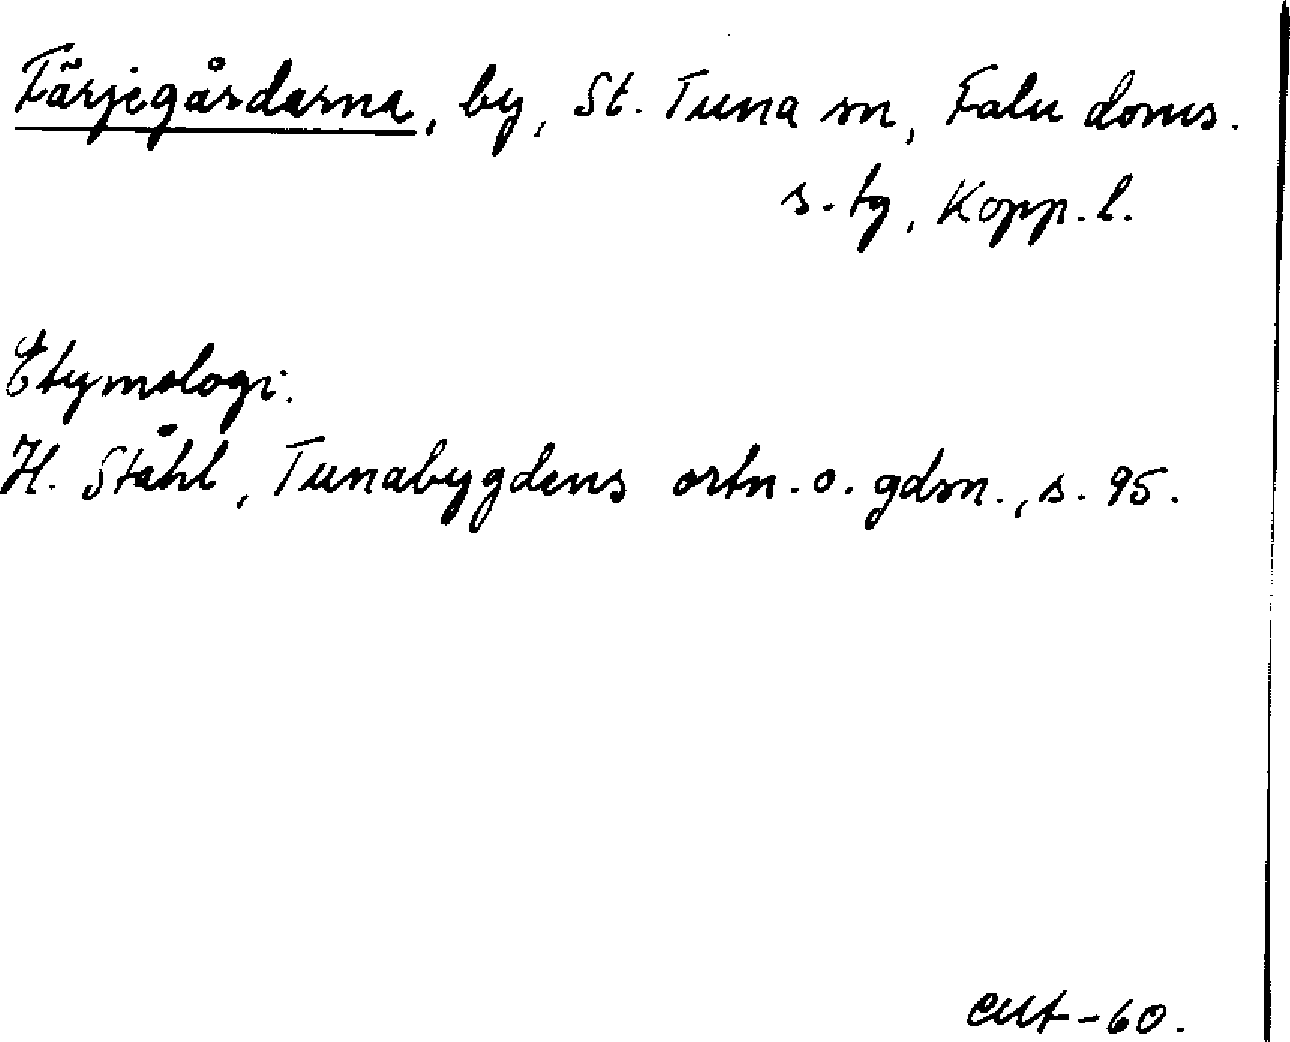 Färjegårdarna, by, St. Tuna sn, Falu doms.
s. tg, Kopp. l.
Etymologi:
H. Ståhl, Tunabygdens ortn. o. gdsn., s. 95.
-60.